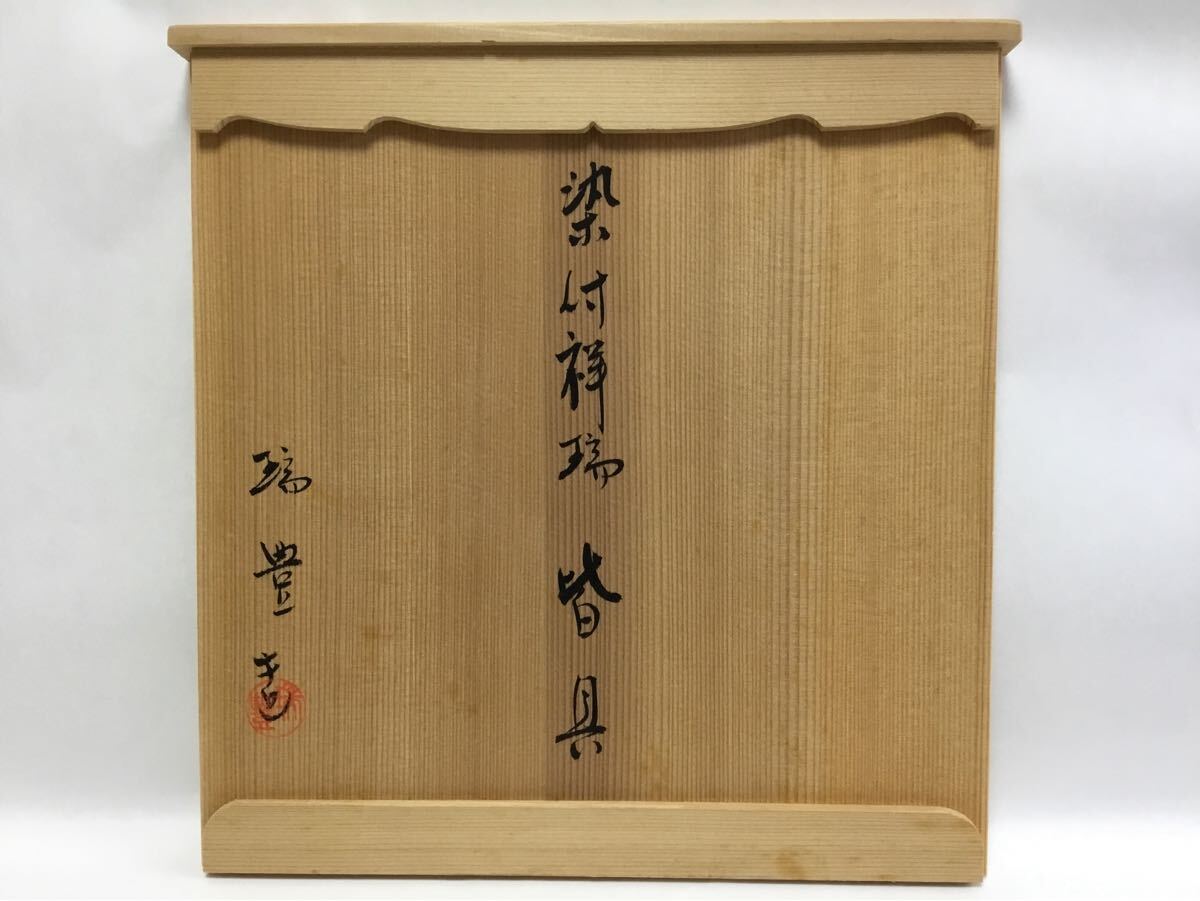 染付祥瑞 皆具
瑞豊造